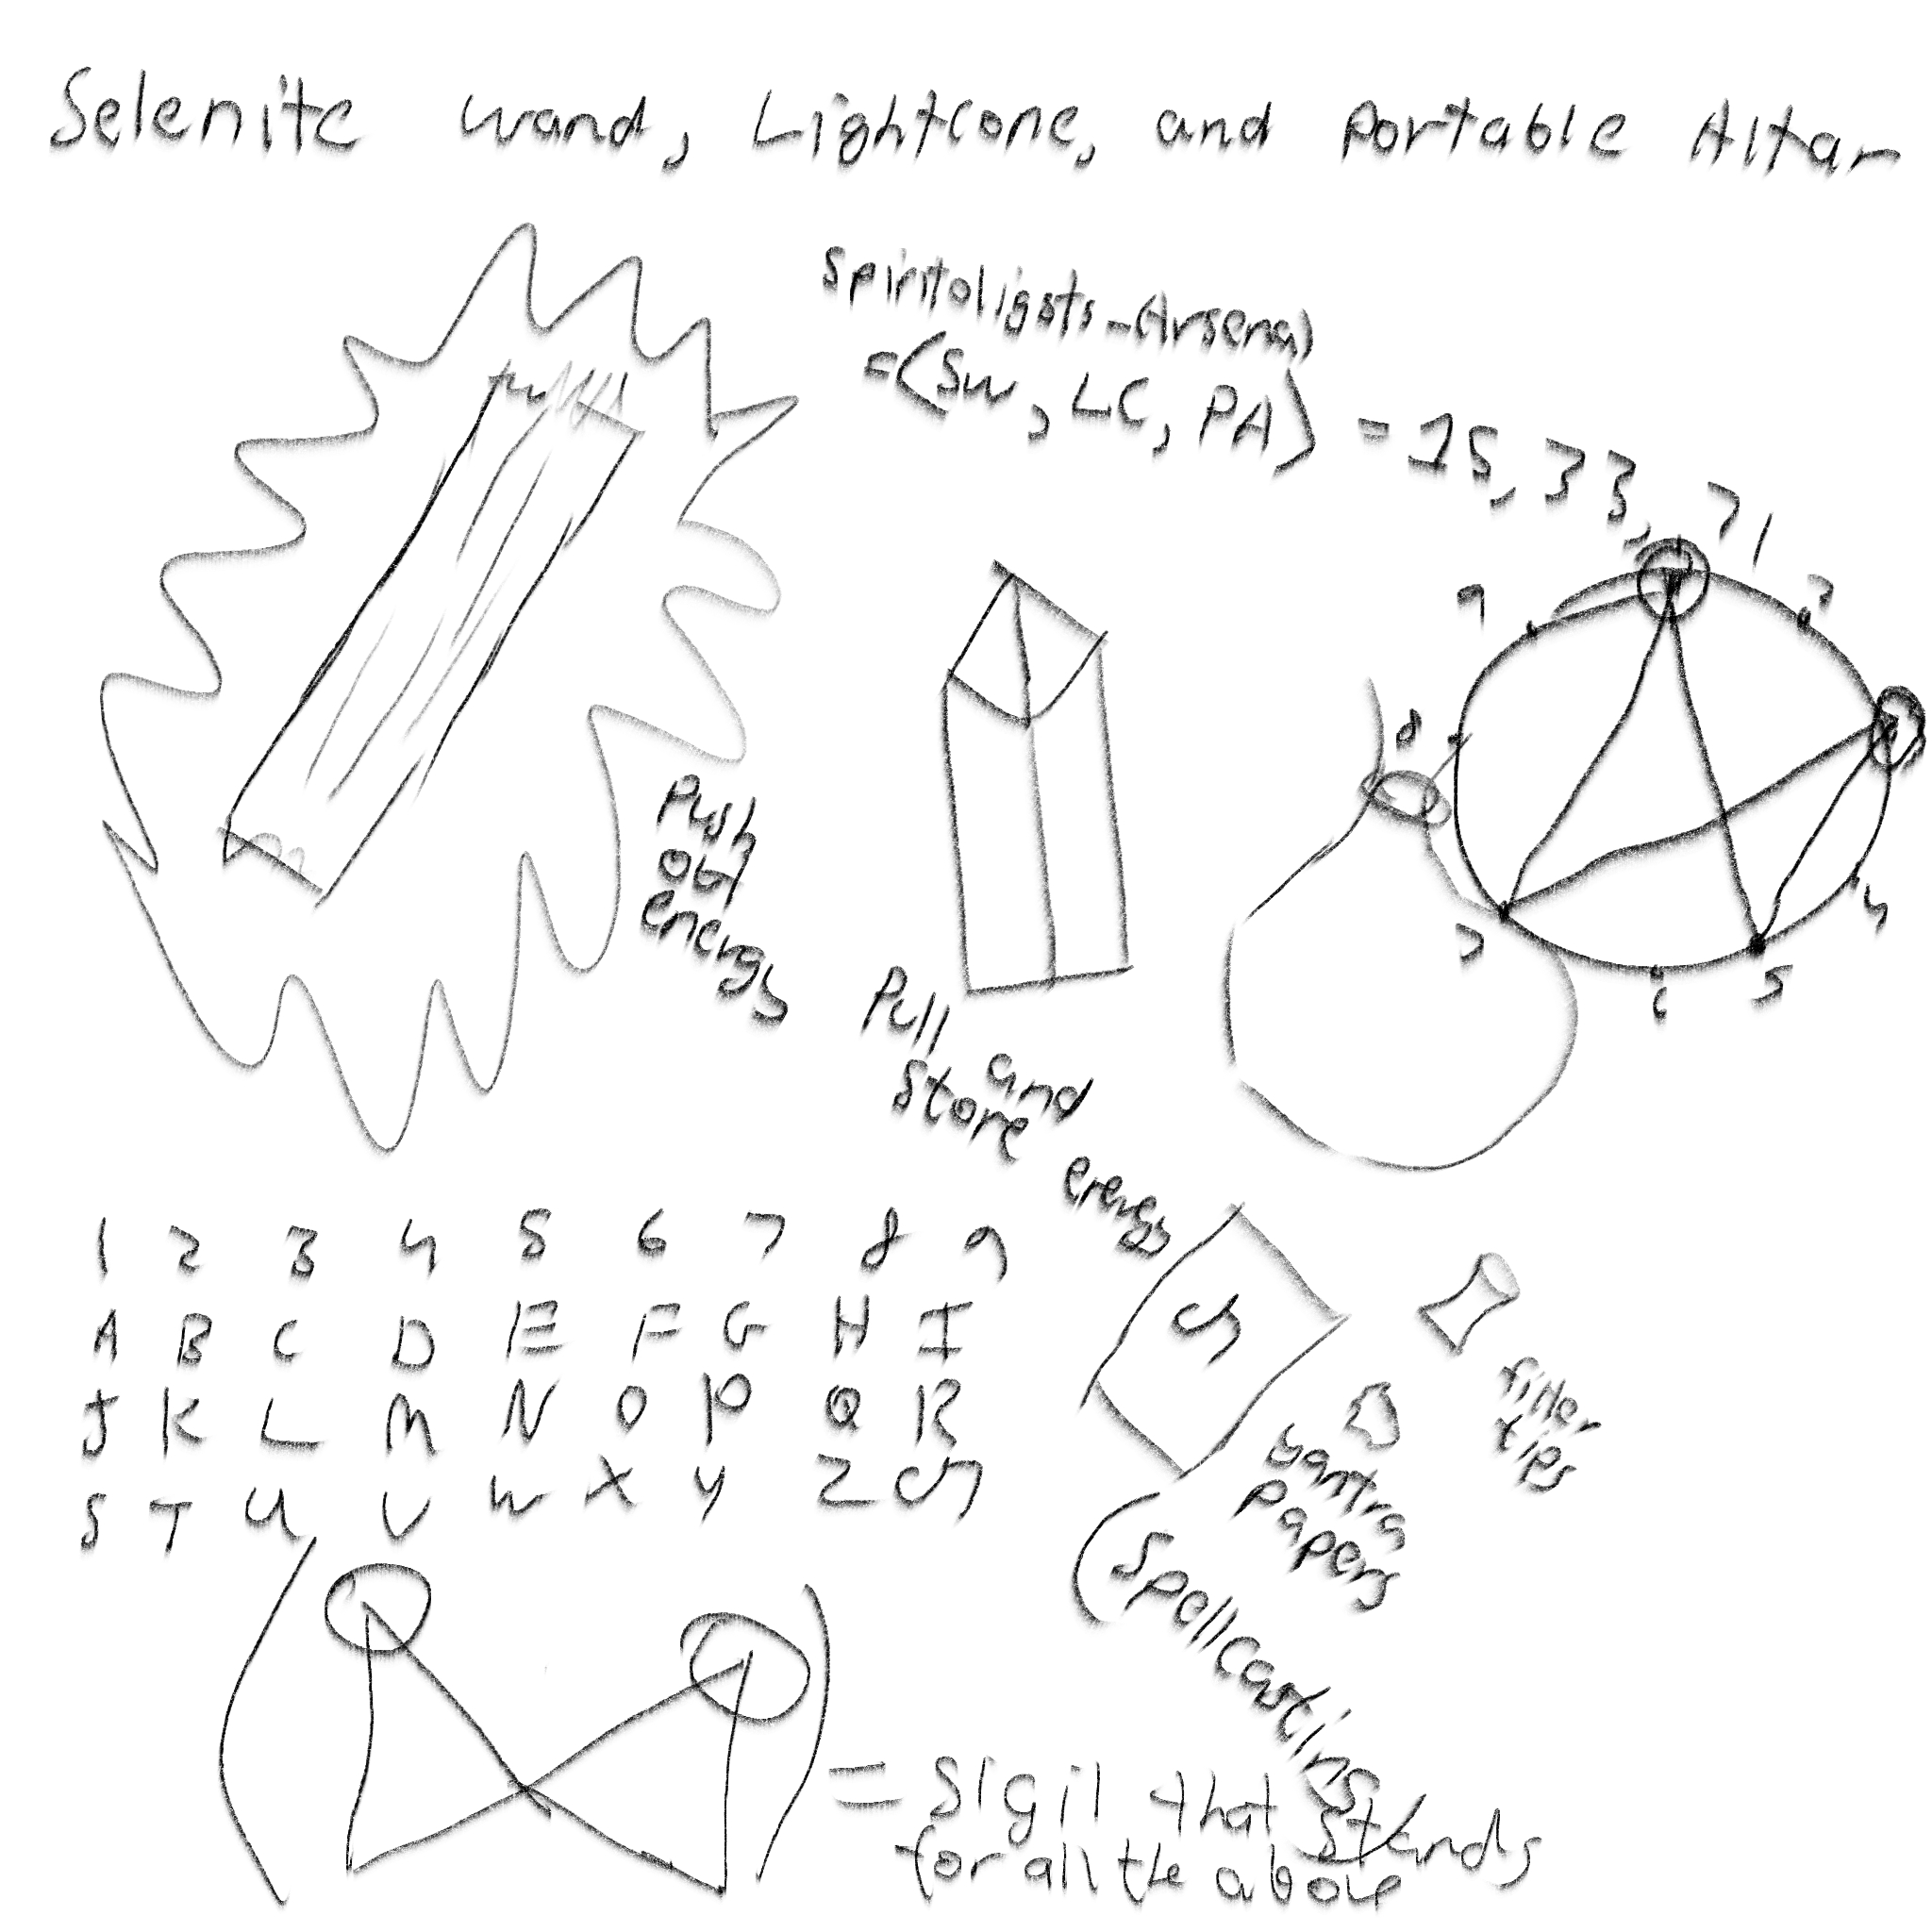 Selenite wand, Lightcone, and Portable Altar
Spiritoligsts-Arsenal
=(SW, LC, PA) = 15, 33, 71
Push
out
energy
Pull and
store energy
1
2
4
5
6
7
8
9
1 2 3 4 5 6 7 8 9
A B C D E F G H I
J K L M N O P Q R
S T U V W X Y Z
filter
tips
yantra
papers
(Spellcasting
= Sigil that stands
for all the above